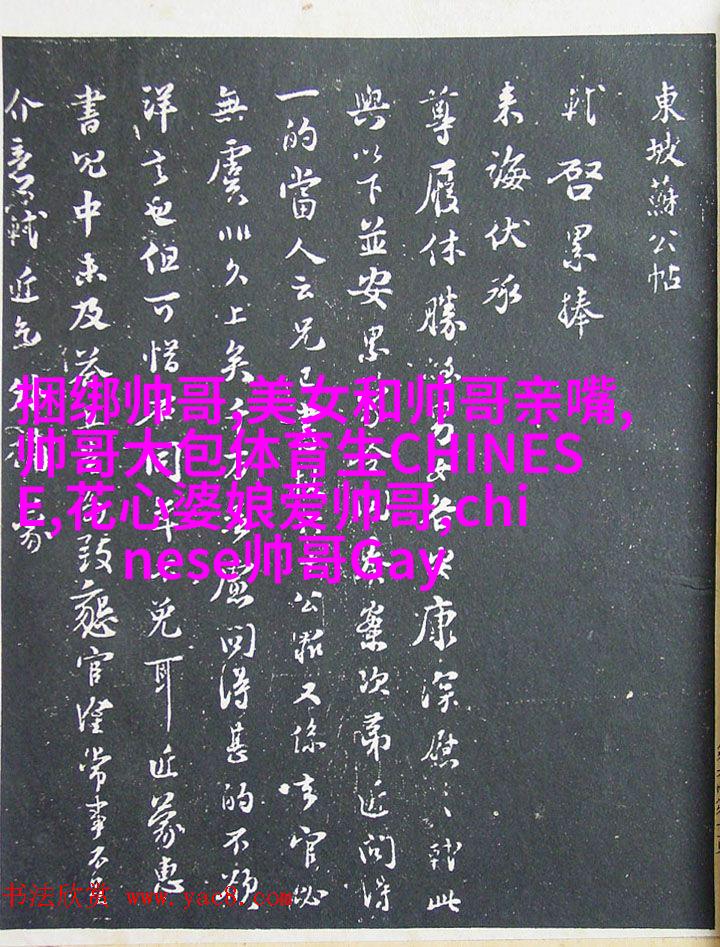 東坡蘇公帖
軾啓累捧
来誨伏承
尊履休勝
康深慰〻軾此
與以下並安
案次第近問得
一的當人云兄
公罪又係去官必
無虞非久上矣
慮問得甚的不煩
詳言也但可惜
同年
免耳近蒙惠
書兄中未及答
致懇官滿常事不
介意軾近
捆绑帅哥,美女和帅哥亲嘴,
帅哥大包体育生CHINES
E,花心婆娘爱帅哥,chi
nese帅哥Gay
书法欣赏 www.yac8.com